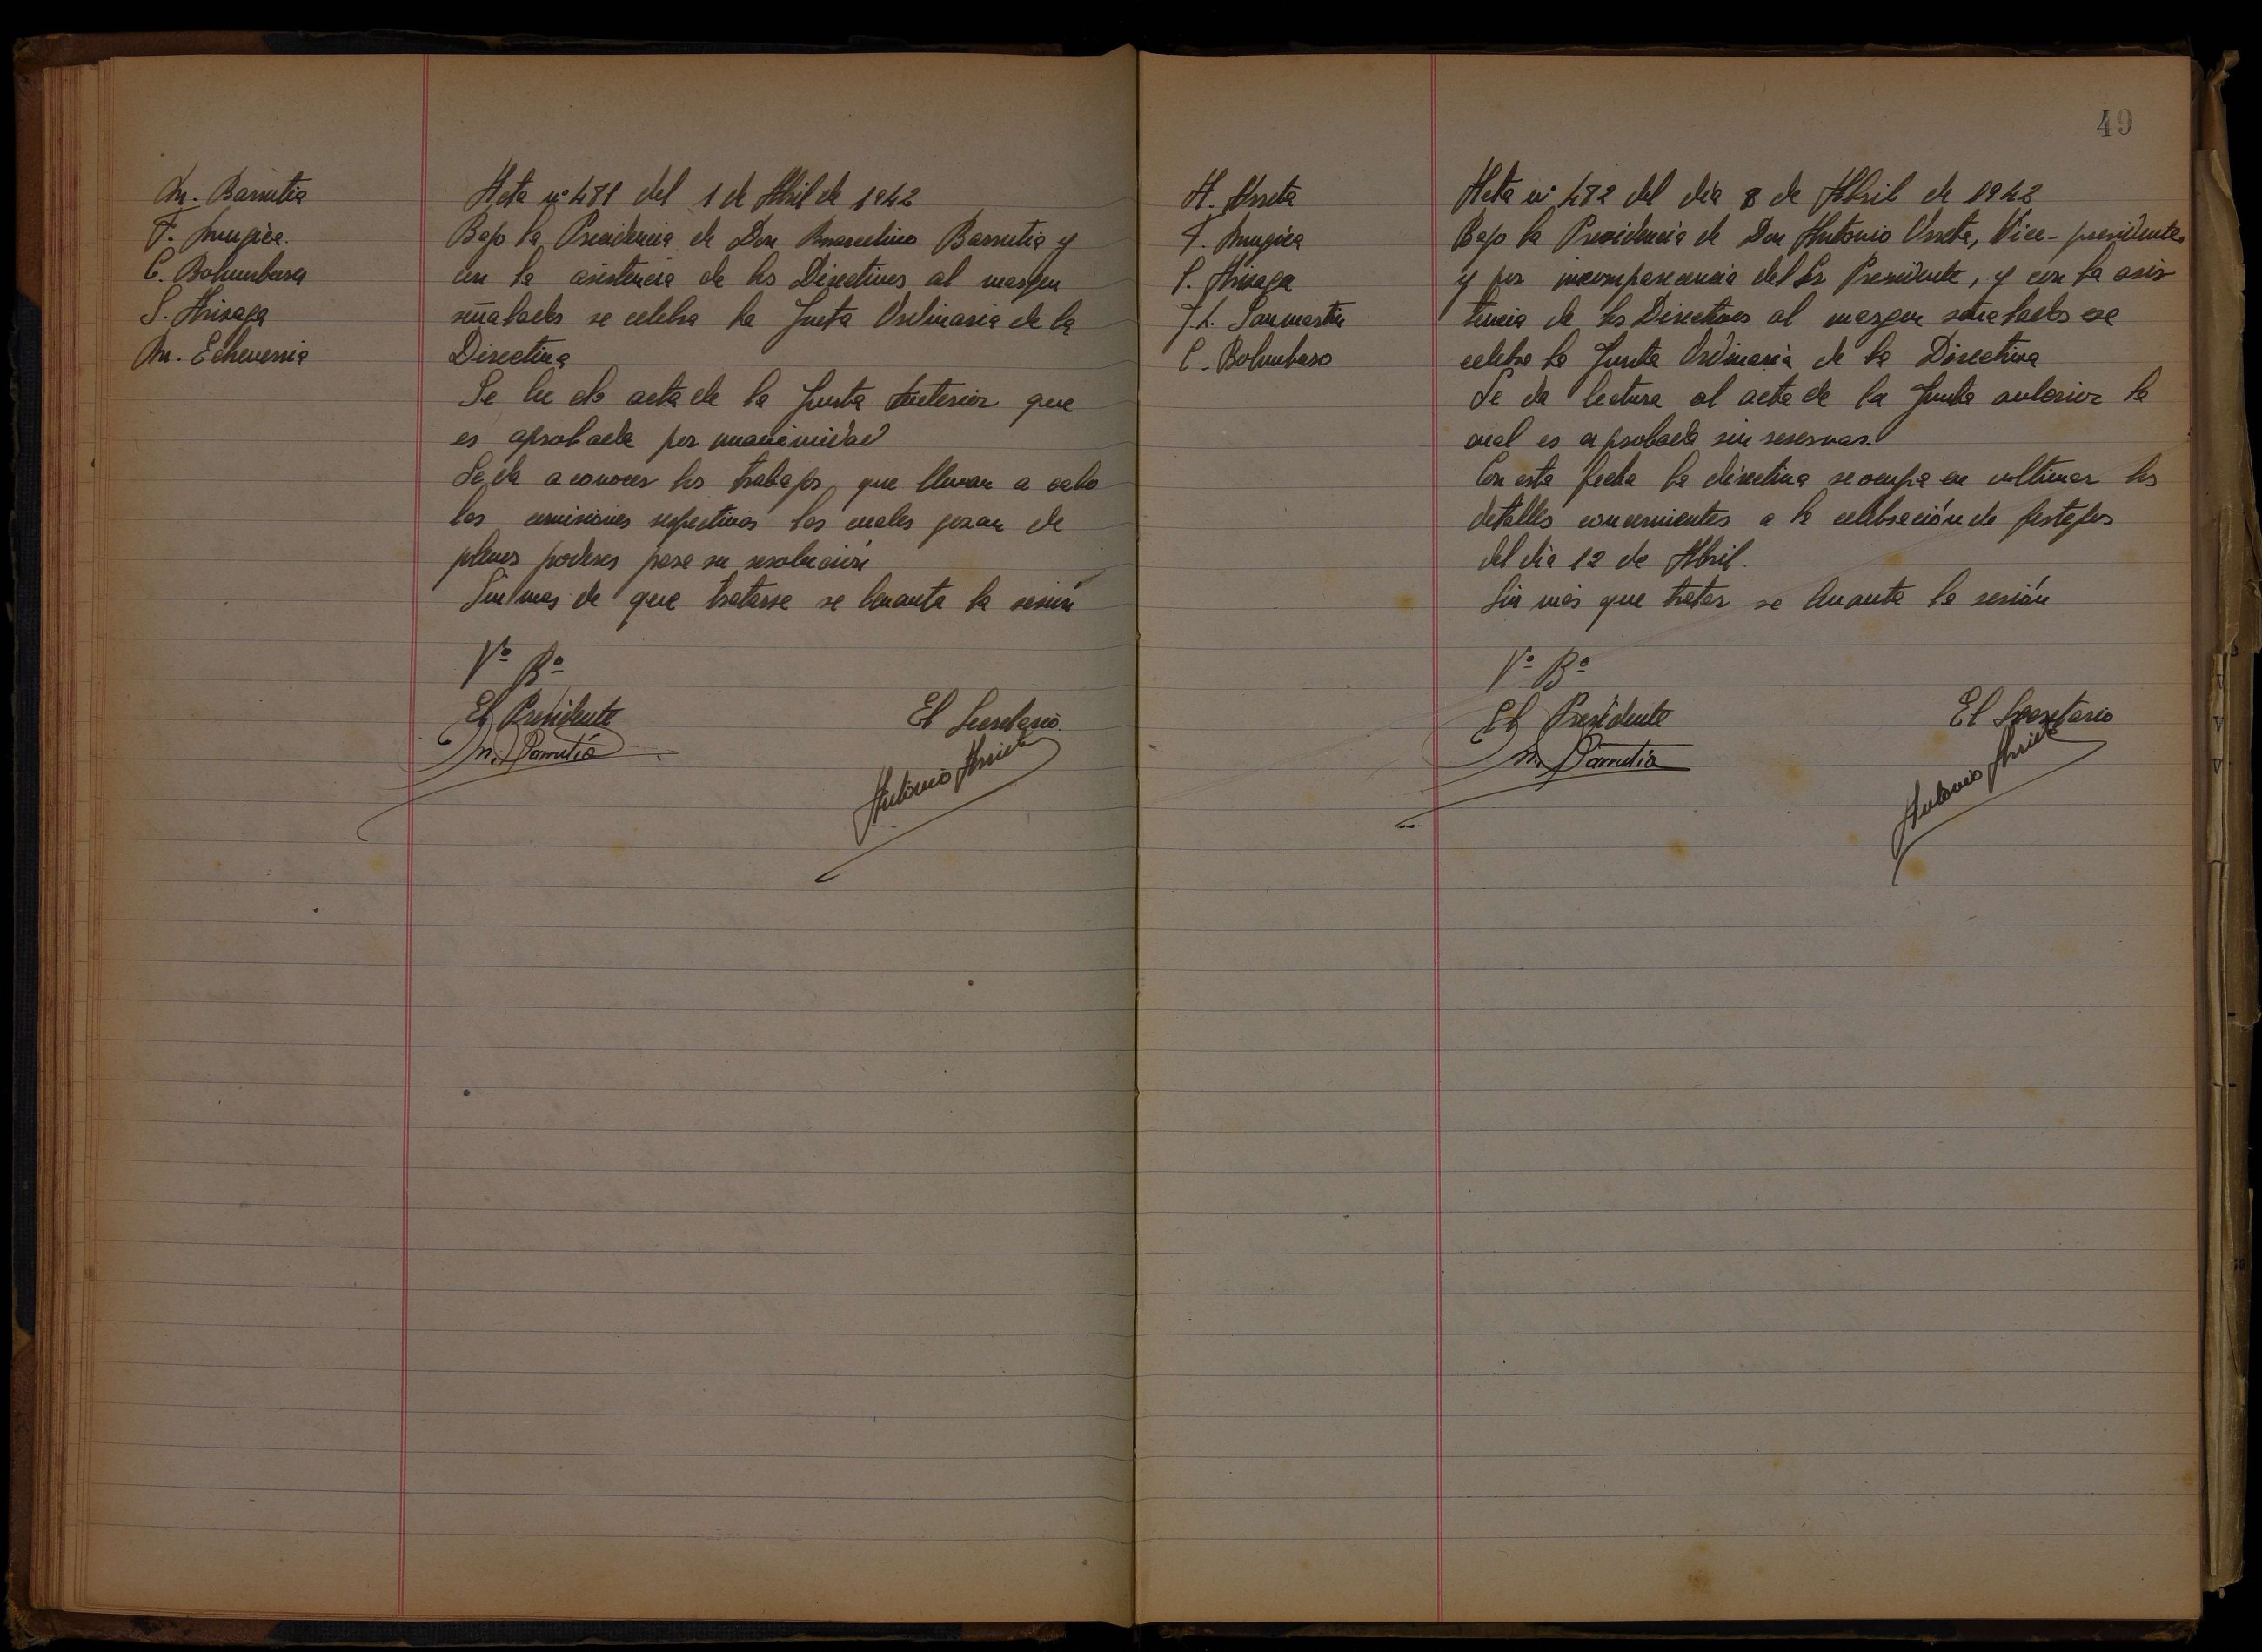 M. Barrutia
F. Mugica.
C. Bolumburu
S. Arisaga
M. Echeverria
Acta nº 481 del 1 de Abril de 1942
Bajo la Presidencia de Don Marcelino Barrutia y
con la asistencia de los Directivos al margen
señalados se celebra la Junta Ordinaria de la
Directiva
Se lee el acta de la Junta Anterior que
es aprobada por unanimidad
Se da a conocer los trabajos que llevan a cabo
las comisiones respectivas las cuales gozan de
plenos poderes para su resolución
Sin mas de que tratarse se levanta la sesión
Vº Bº
El Presidente
M. Barrutia
El Secretario
Antonio
49
A. Urreta
F. Mugica
S. Arisaga
J.L. Sanmartin
C. Bolumburo
Acta nº 482 del día 8 de Abril de 1942
Bajo la Presidencia de Don Antonio Urreta, Vice-presidente
y por incomparecencia del Sr Presidente, y con la asis
tencia de los Directivos al margen señalados se
celebra la Junta Ordinaria de la Directiva
Se da lectura al acta de la Junta anterior la
cual es aprobada sin reservas.
Con esta fecha la directiva se ocupa en ultimar los
detalles concernientes a la celebración de festejos
del dia 12 de Abril.
Sin más que tratar se levanta la sesión
Vº Bº
El Presidente
M. Barrutia
El Secretario
Antonio